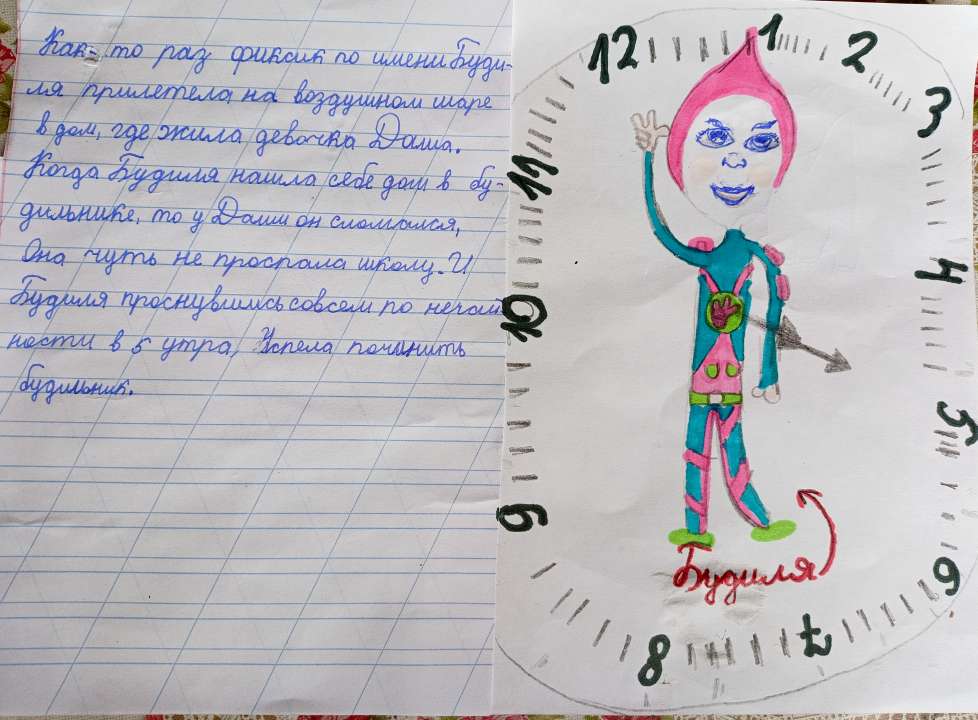 Как-то раз фиксик по имени Буди-
ля прилетела на воздушном шаре
в дом, где жила девочка Даша.
Когда Будиля нашла себе дом в бу-
дильнике, то у Даши он сломался,
Она чуть не проспала школу. И
Будиля проснувшись совсем по нечаян
ности в 5 утра, Успела починить
будильник.
12
1
2
3
4
5
6
7
8
9
10
11
Будиля